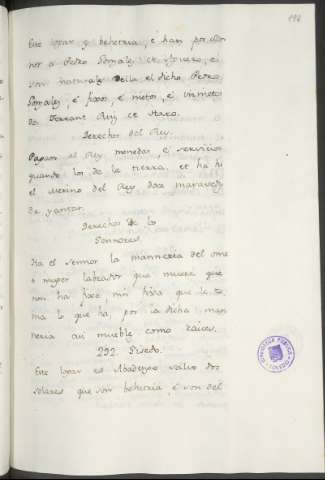 Este logar es behetria, é han por señor
nor a Pedro Gonzalez de
son naturales della el dicho Pedro
Gonzalez, é fijos, é nietos, é visnietos
de Ferrant Ruiz de
Derechos del Rey.
Pagan al Rey monedas, é servicios
quando los de la tierra. et ha hi
el Merino del Rey doce maraveds
de yantar.
Derechos de los
Sennores.
Ha el sennor la manneria del ome
o muger labrador que muere que
non ha fijo, nin fija que le to-
ma lo que ha por la dicha man-
neria asi mueble como raices.
292. Pisedo.
Este logar es Abadengo salvo dos
solares que son behetria, é son del